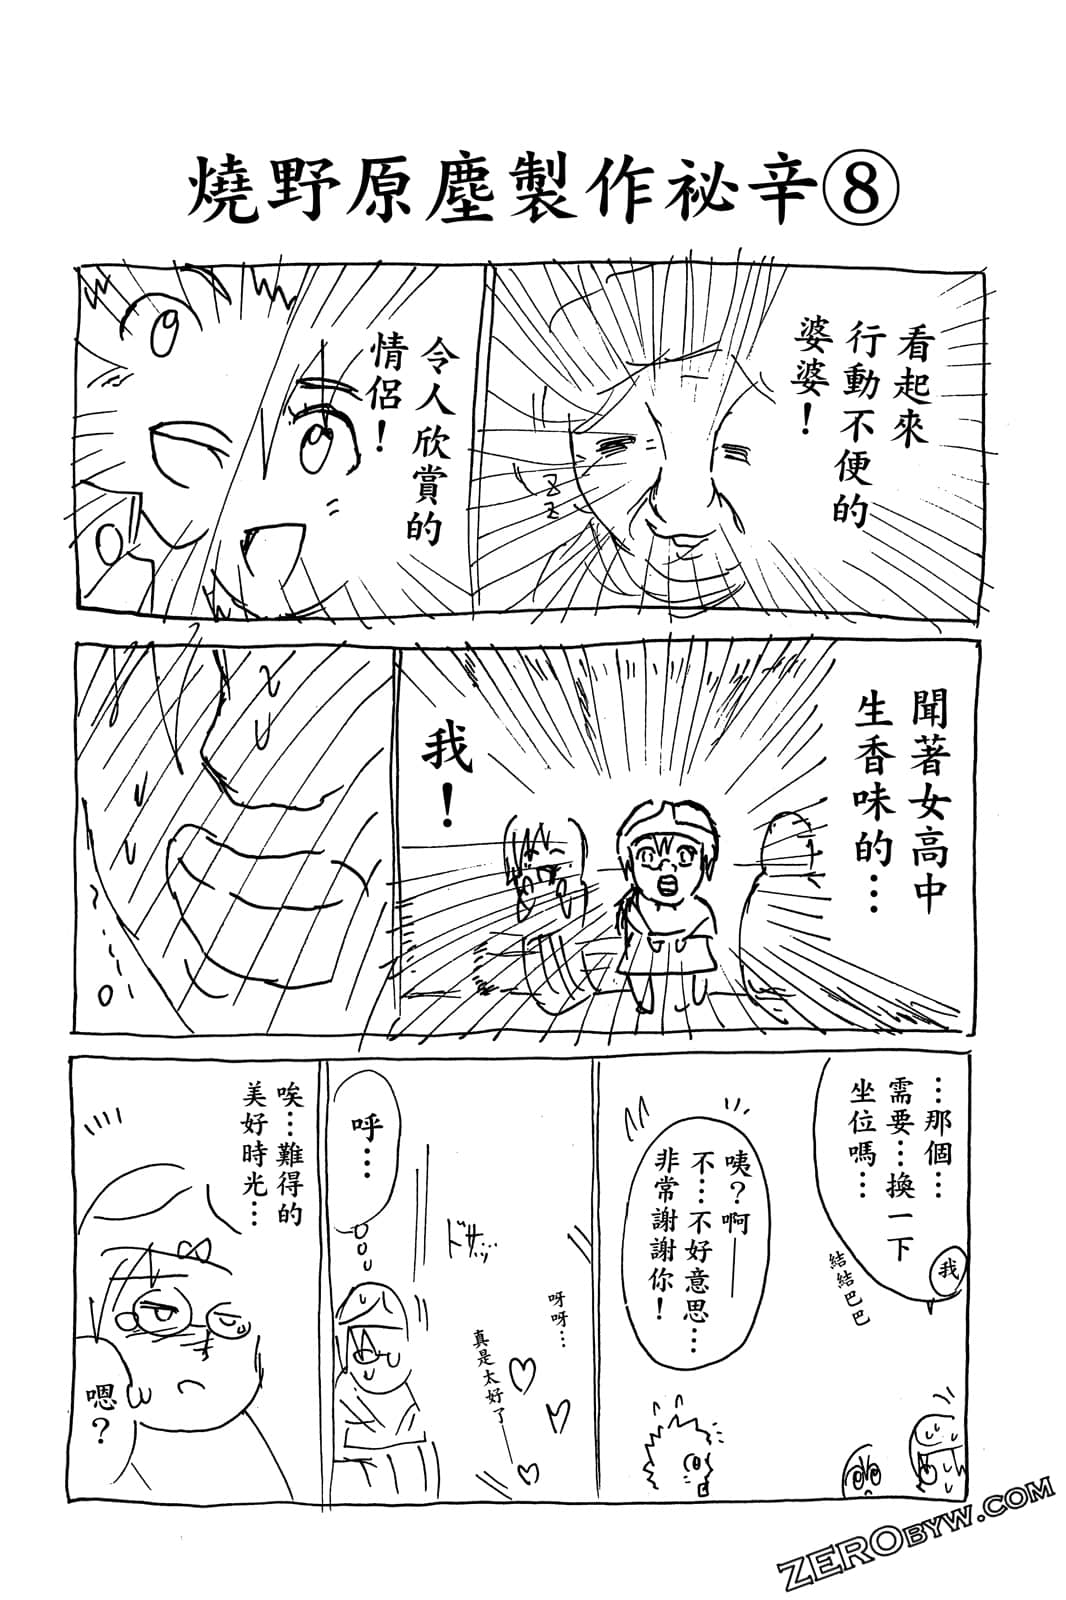 燒野原塵製作祕辛⑧
看起來
行動不便的
婆婆！
令人欣賞的
情侶！
聞著女高中
生香味的…
我！
…那個…
需要…換一下
坐位嗎…
我
結結巴巴
咦？啊——
不…不好意思…
非常謝謝你！
呀呀…
真是太好了——
ドサッ…
呼…
唉…難得的
美好時光…
嗯？
ZEROBYW.COM